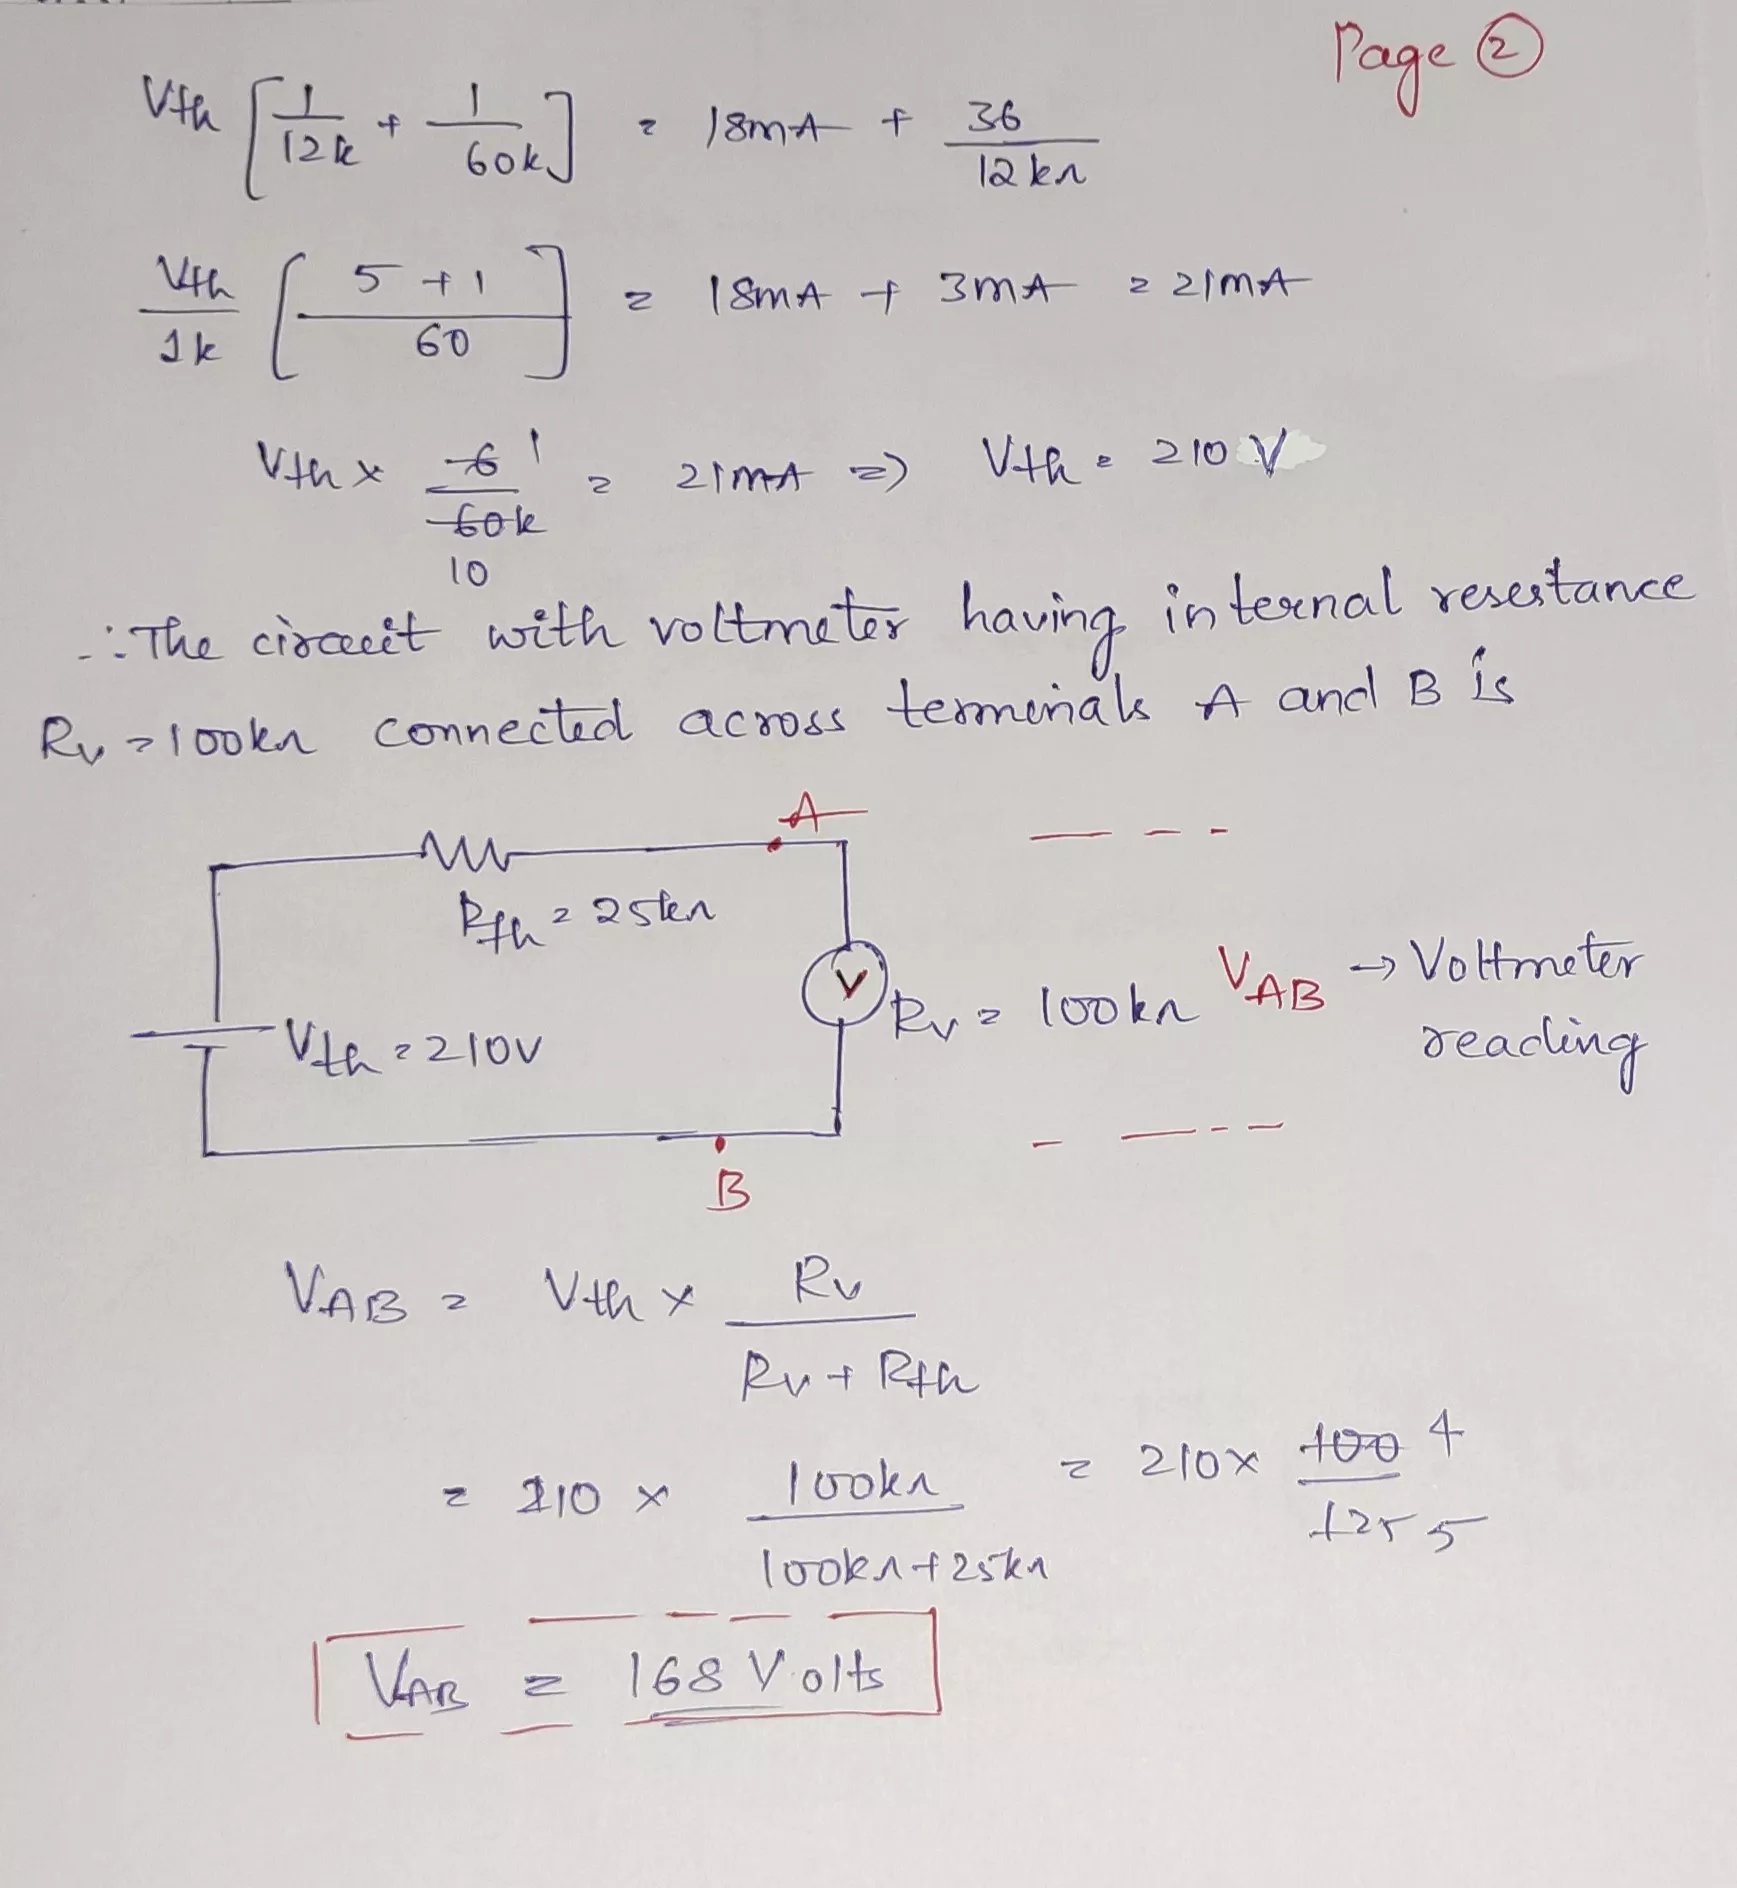 Page ②
Vth [ 1/12k + 1/60k ] = 18mA + 36/12kΩ
Vth/1k [ (5 + 1)/60 ] = 18mA + 3mA = 21mA
Vth × 6/60k 1/10 = 21mA => Vth = 210 V
∴ The circuit with voltmeter having internal resestance
Rv = 100kΩ connected across terminals A and B is
A
Rth = 25kΩ
V
Rv = 100kΩ VAB → Voltmeter
reading
Vth = 210V
B
VAB = Vth × Rv/(Rv + Rth)
= 210 × 100kΩ/(100kΩ + 25kΩ) = 210 × 100/125 4/5
VAB = 168 Volts